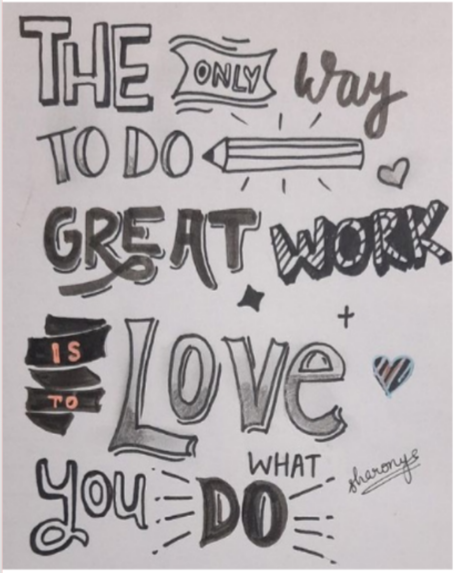 THE ONLY Way
TO DO
GREAT WORK
IS
TO
LOVe
WHAT
you DO
sharonys